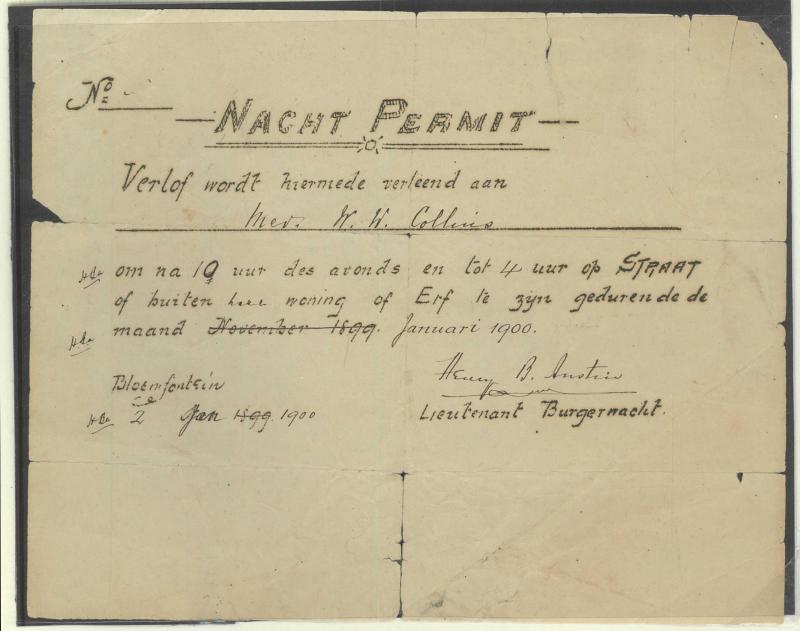 No
NACHT PERMIT
Verlof wordt hiermede verleend aan
Mev. W. W. Collins
HBA om na 10 uur des avonds en tot 4 uur op STRAAT
of buiten hare woning of Erf te zijn gedurende de
HBA maand November 1899. Januari 1900.
Bloemfontein
Henry B. Austin
HBA 2 Jan 1899. 1900
Lieutenant Burgerwacht.